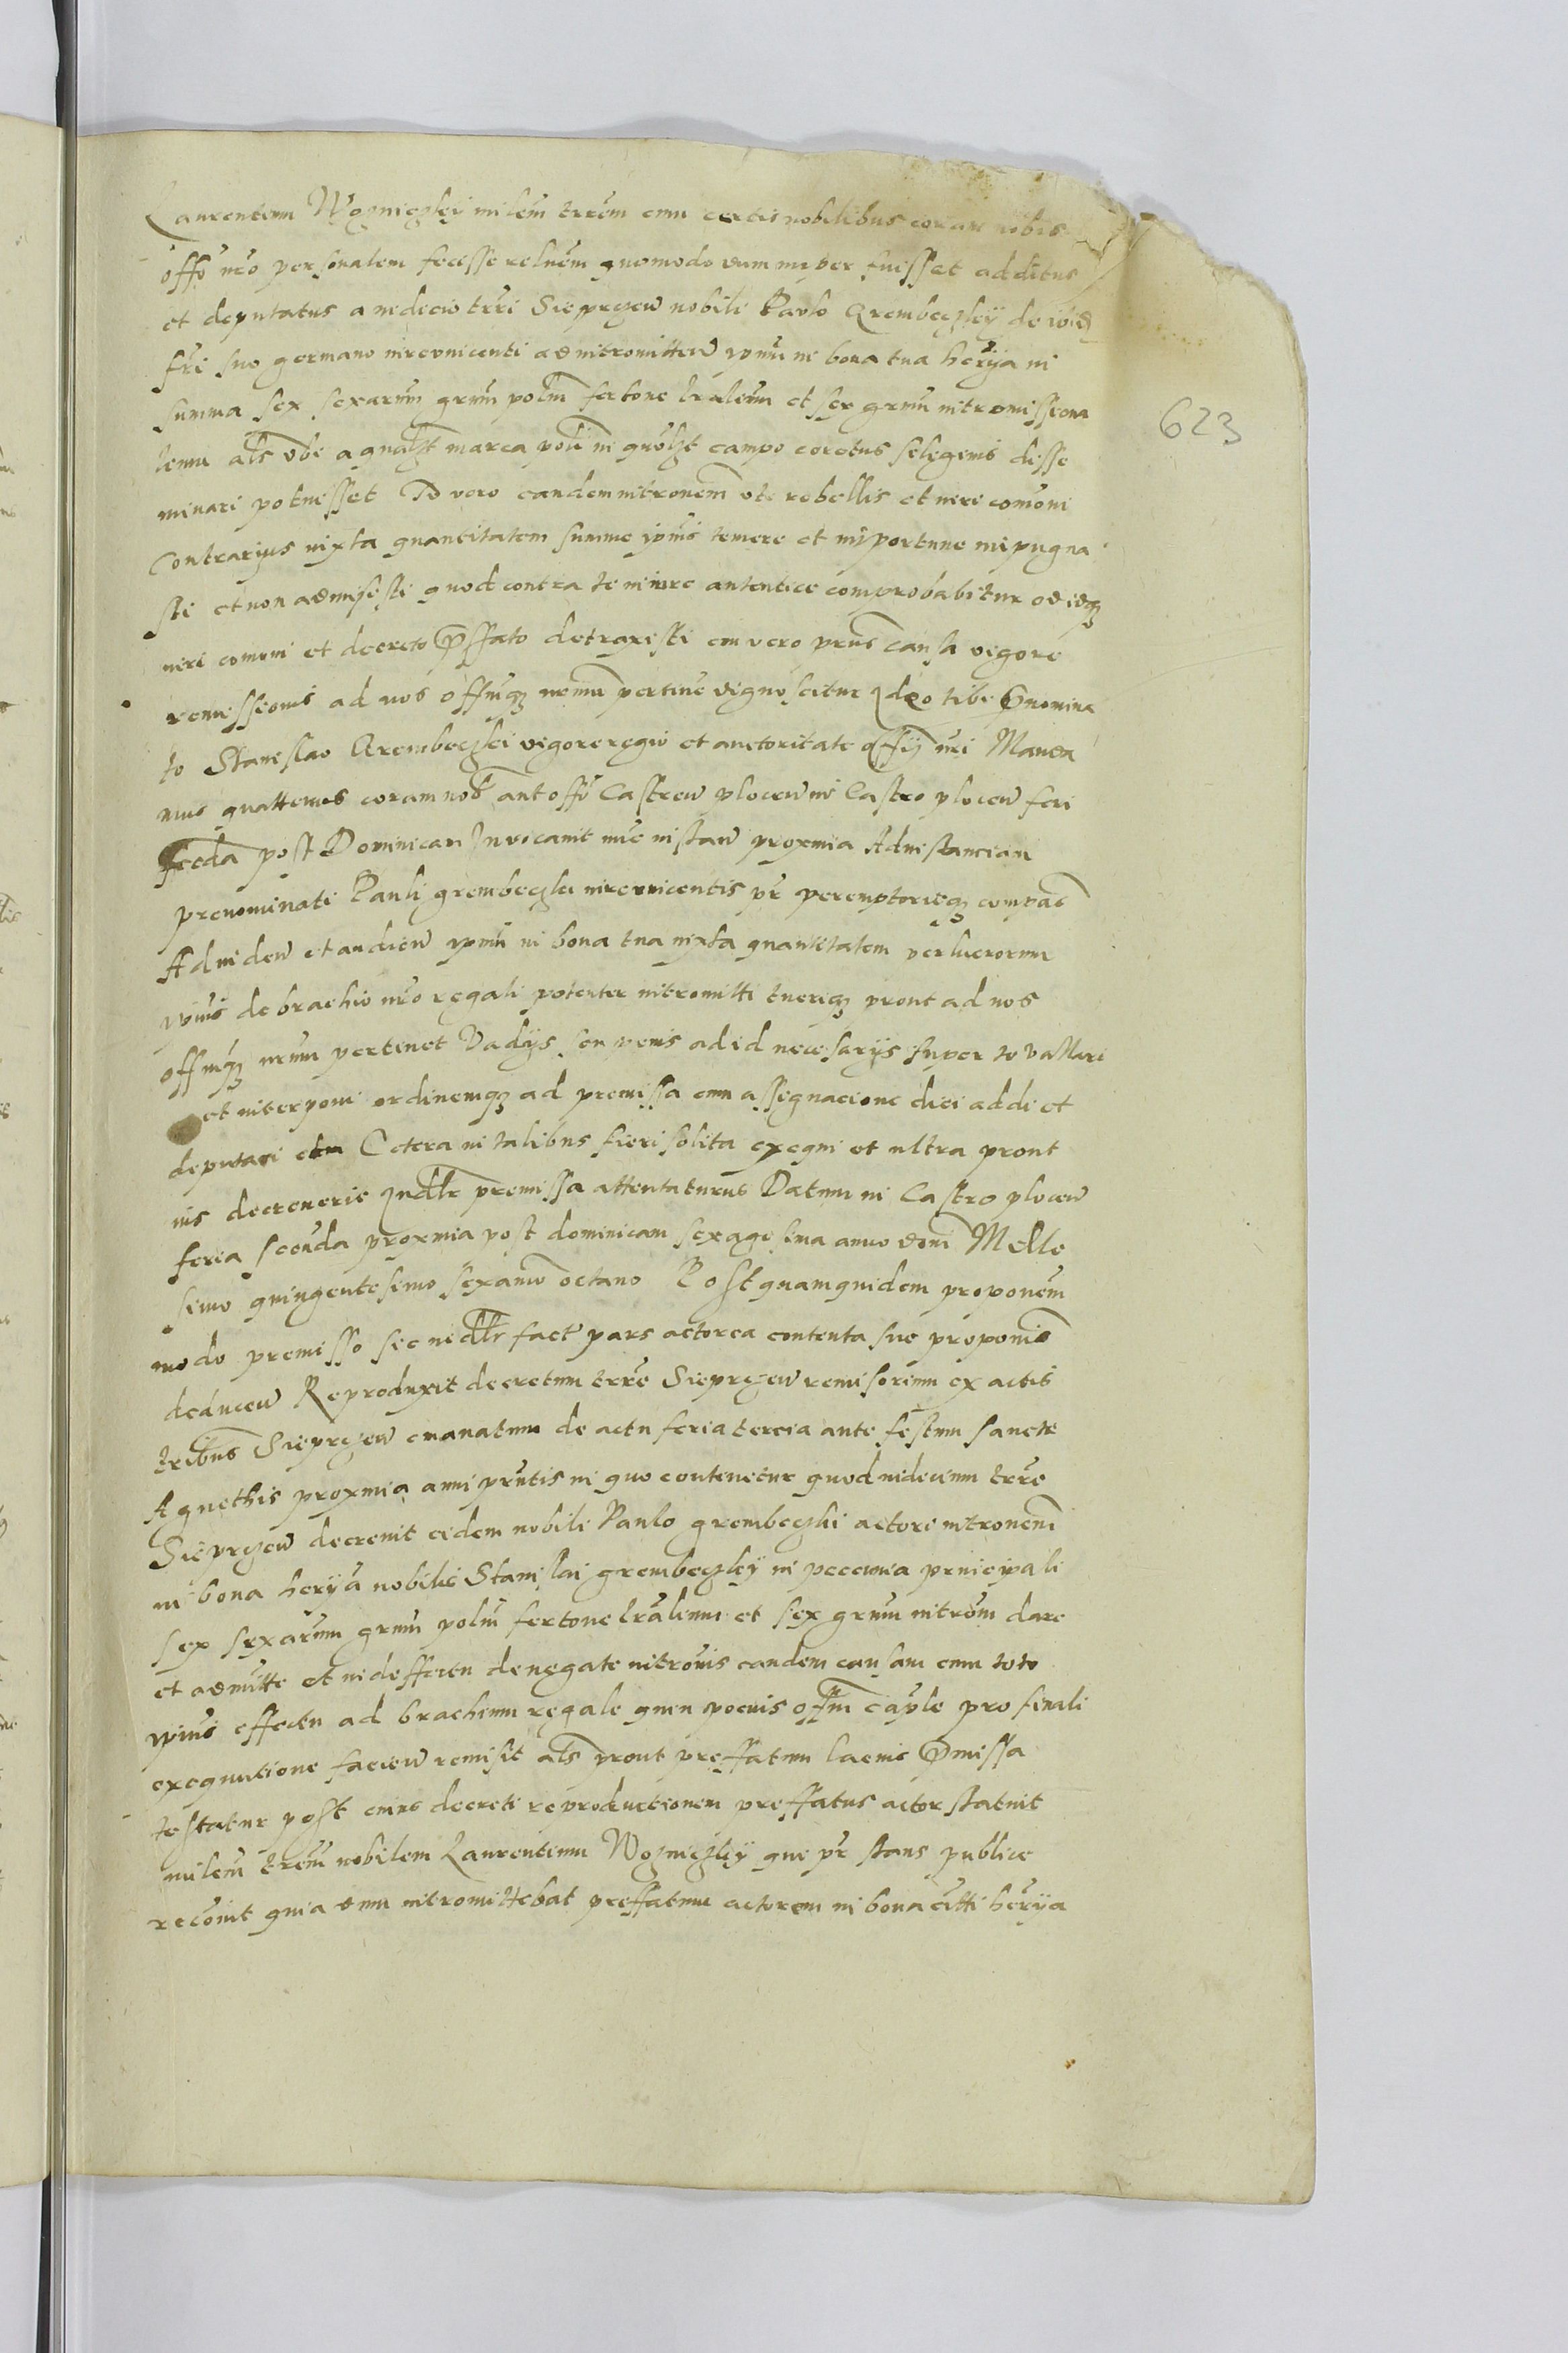 Laurentium Wozniczki milem trrem cum certis nobilibus coram nobis
offo nro personalem fecisse relnem quomodo dum nuper fuisset additus
et deputatus a iudicio trri Sieprczen nobili Paulo Grembeczky de ibid
fri suo germano iurevincenti ad intromitten ipsum in bona tua herija in
summa sex sexarum grum polm fertone lralium et sex grum intromissiona
lium als vbi a qualzt marca poli in quolzt campo coretus seliginis disse
minari potuisset Tu vero eandem intronem uti rebellis et iuri comuni
Contrarius iuxta quantitatem summe ipius temere et importune impugna
sti et non admisisti quod contra te in iure autentice comprobabitur
iuri comuni et decreto pffato detraxisti cum vero prns causa vigore
remissionis ad nos offmqz nrum pertine dignoscitur Ideo tibi pnomina
to Stanislao Grembeczki vigore regio et auctoritate offij nri Manda
mus quattenus coram nob aut offo Castren plocen in Castro plocen feri
scda post Dominicam Inuocauit nuc instan proxmia Ad instanciam
prenominati Pauli grembeczki iurevincentis pr peremptorieqz compas
Ad viden et audien ipsum in bona tua iuxta quantitatem perlucrorum
ipius de brachio nro regali potenter intromitti tuerigz prout ad nos
offmqz nrum pertinet Vadijs seu penis ad id necesarijs super te vallari
et interponi ordinemqz ad premissa cum assignacione diei addi et
deputari Cetera in talibus fieri solita exequi et ultra prout
ius decreuerit Indlr premissa attentaturus Datum in Castro plocen
feria scunda proxmia post dominicam sexagesima anno dom Mille
simo quingentesimo sexanno octauo Postquamquidem proponem
modo premisso sic iudlr fact pars actorea contenta sue proponis
deducen Reproduxit decretum trre Sieprczen remisorium ex actis
tribus Sieprczen emanatum de actu feria tercia ante festum sancte
Agnethis proxmia anni prntis in quo continetur quod iudicium trre
Sieprczen decreuit eidem nobili Paulo grembeczki actori intronem
in bona herija nobilis Stanislai grembeczky in pecunia principali
sex sexarum grum polm fertone lralium et sex grum introm dare
et admitte et in deffectu denegate intronis eandem causam cum toto
ipius effectu ad brachium regale quin pocius offm caple pro finali
exequutione facien remisit als prout preffatum lacius pmissa
testatur post cuius decreti reproductionem preffatus actor statuit
milem trrem nobilem Laurentium Wozniczky qui pr stans publice
recouit quia dum intromittebat preffatum actorem in bona citti herija
623